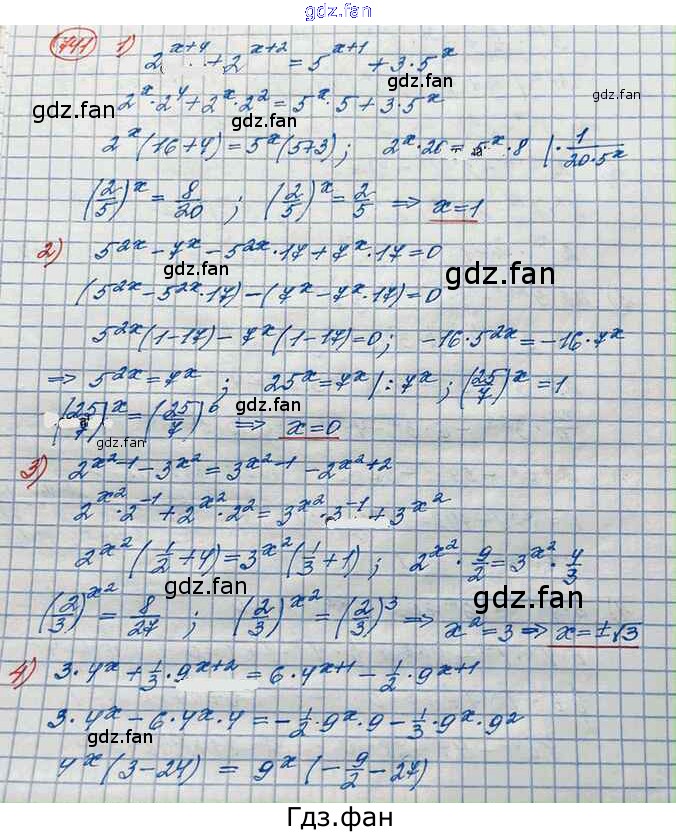 gdz.fan
741 1) 2^(x+4) + 2^(x+2) = 5^(x+1) + 3·5^x
gdz.fan
gdz.fan
2^x·2^4 + 2^x·2^2 = 5^x·5 + 3·5^x
gdz.fan
gdz.fan
2^x(16+4) = 5^x(5+3); 2^x·20 = 5^x·8 |·1/(20·5^x)
(2/5)^x = 8/20; (2/5)^x = 2/5 ⇒ x=1
2) 5^(2x) − 7^x − 5^(2x)·17 + 7^x·17 = 0
gdz.fan
gdz.fan
(5^(2x) − 5^(2x)·17) − (7^x − 7^x·17) = 0
5^(2x)(1−17) − 7^x(1−17) = 0; −16·5^(2x) = −16·7^x
⇒ 5^(2x) = 7^x; 25^x = 7^x |:7^x; (25/7)^x = 1
gdz.fan
(25/7)^x = (25/7)^0 ⇒ x=0
3) 2^(x²−1) − 3^(x²) = 3^(x²−1) − 2^(x²+2)
gdz.fan
gdz.fan
2^(x²)·2^(−1) + 2^(x²)·2^2 = 3^(x²)·3^(−1) + 3^(x²)
2^(x²)(1/2+4) = 3^(x²)(1/3+1); 2^(x²)·9/2 = 3^(x²)·4/3
gdz.fan
gdz.fan
(2/3)^(x²) = 8/27; (2/3)^(x²) = (2/3)^3 ⇒ x²=3 ⇒ x=±√3
4) 3·4^x + 1/3·9^(x+2) = 6·4^(x+1) − 1/2·9^(x+1)
gdz.fan
3·4^x − 6·4^x·4 = −1/2·9^x·9 − 1/3·9^x·9^2
gdz.fan
gdz.fan
4^x(3−24) = 9^x(−9/2−27)
Гдз.фан